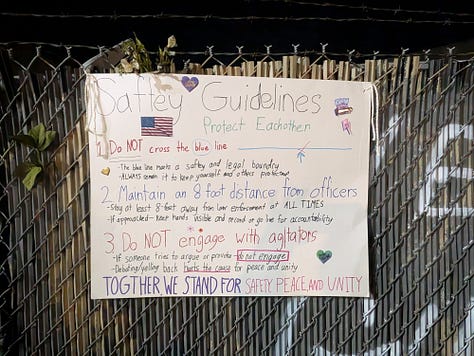 Saftey Guidelines
Protect Eachother
1. Do NOT cross the blue line
- The blue line marks a saftey and legal boundry
- ALWAYS remain it to keep yourself and others protected
2. Maintain an 8 foot distance from officers
- Stay at least 8-feet away from law enforcement at ALL TIMES
- If approached- keep hands visible and record or go live for accountability
3. Do NOT engage with agitators
- If someone tries to argue or provoke do not engage
- Debating/yelling back hurts the cause for peace and unity
TOGTHER WE STAND FOR SAFETY, PEACE, AND UNITY